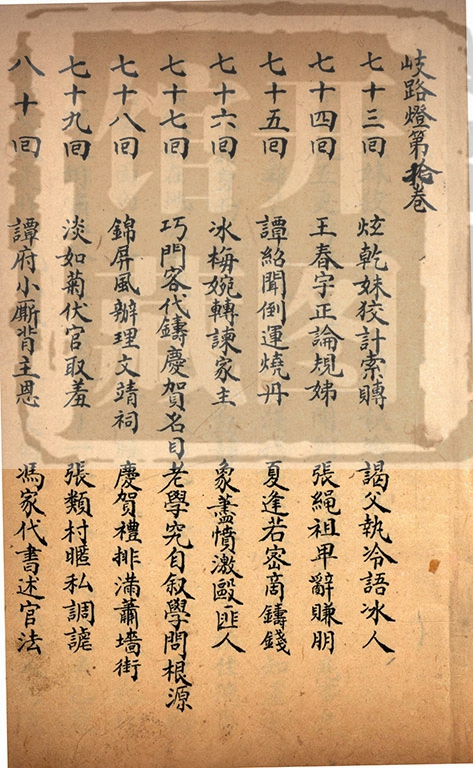 岐路燈第拾卷
七十三回 炫乾妹狡計索賻 謁父執冷語冰人
七十四回 王春宇正論規姊 張繩祖甲辭賺朋
七十五回 譚紹聞倒運燒丹 夏逢若密商鑄錢
七十六回 冰梅婉轉諫家主 象藎憤激毆匪人
七十七回 巧門客代鑄慶賀名目 老學究自叙學問根源
七十八回 錦屏風辦理文靖祠 慶賀禮排滿蕭墻街
七十九回 淡如菊仗官取羞 張類村昵私調謔
八十回 譚府小廝背主恩 馮家代書述官法